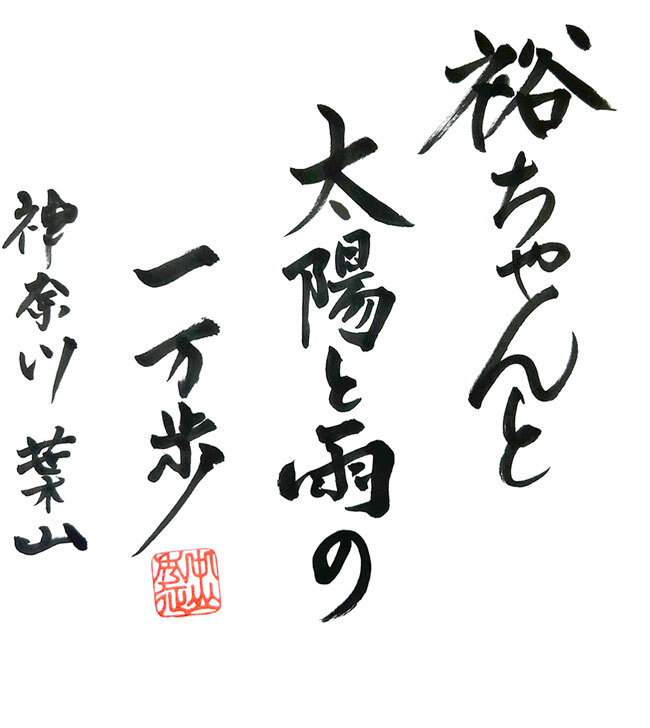 裕ちゃんと
太陽と雨の
一万歩
神奈川 葉山